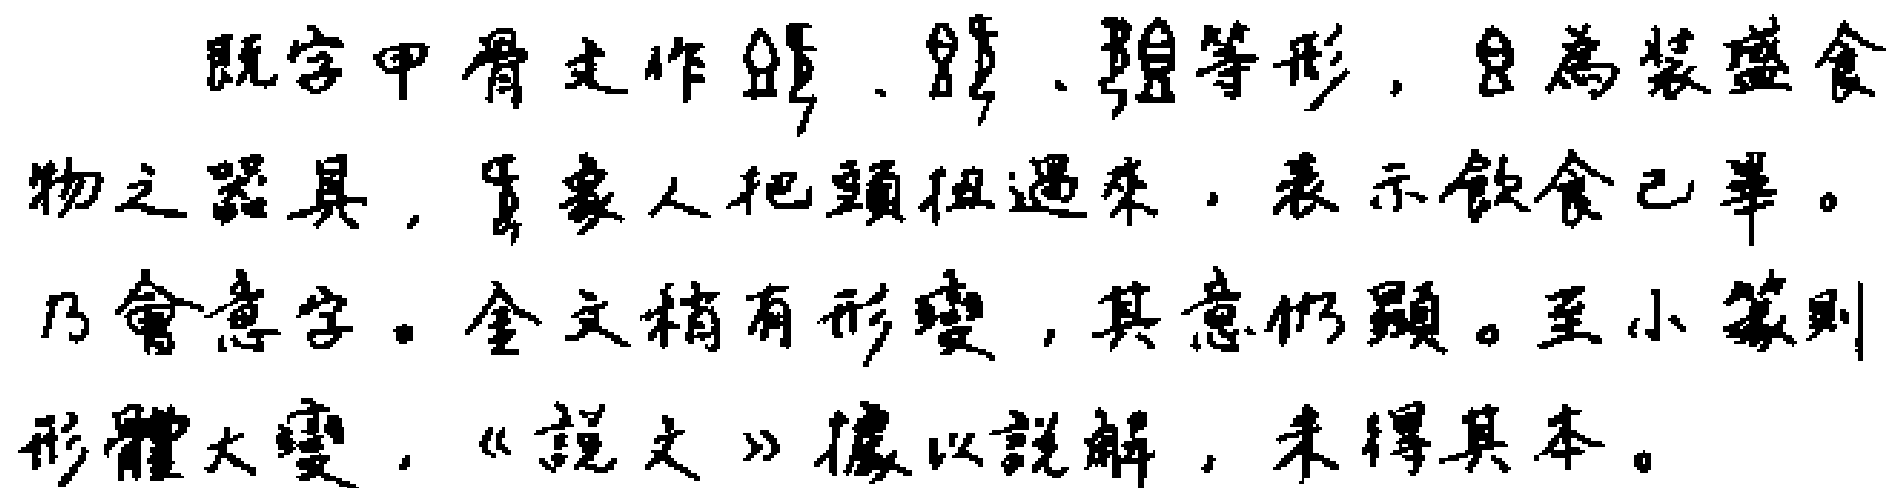 既字甲骨文作、、等形，為裝盛食
物之器具，象人把頭扭過來，表示飲食已畢。
乃會意字。金文稍有形變，其意仍顯。至小篆則
形體大變，《說文》據以說解，未得其本。